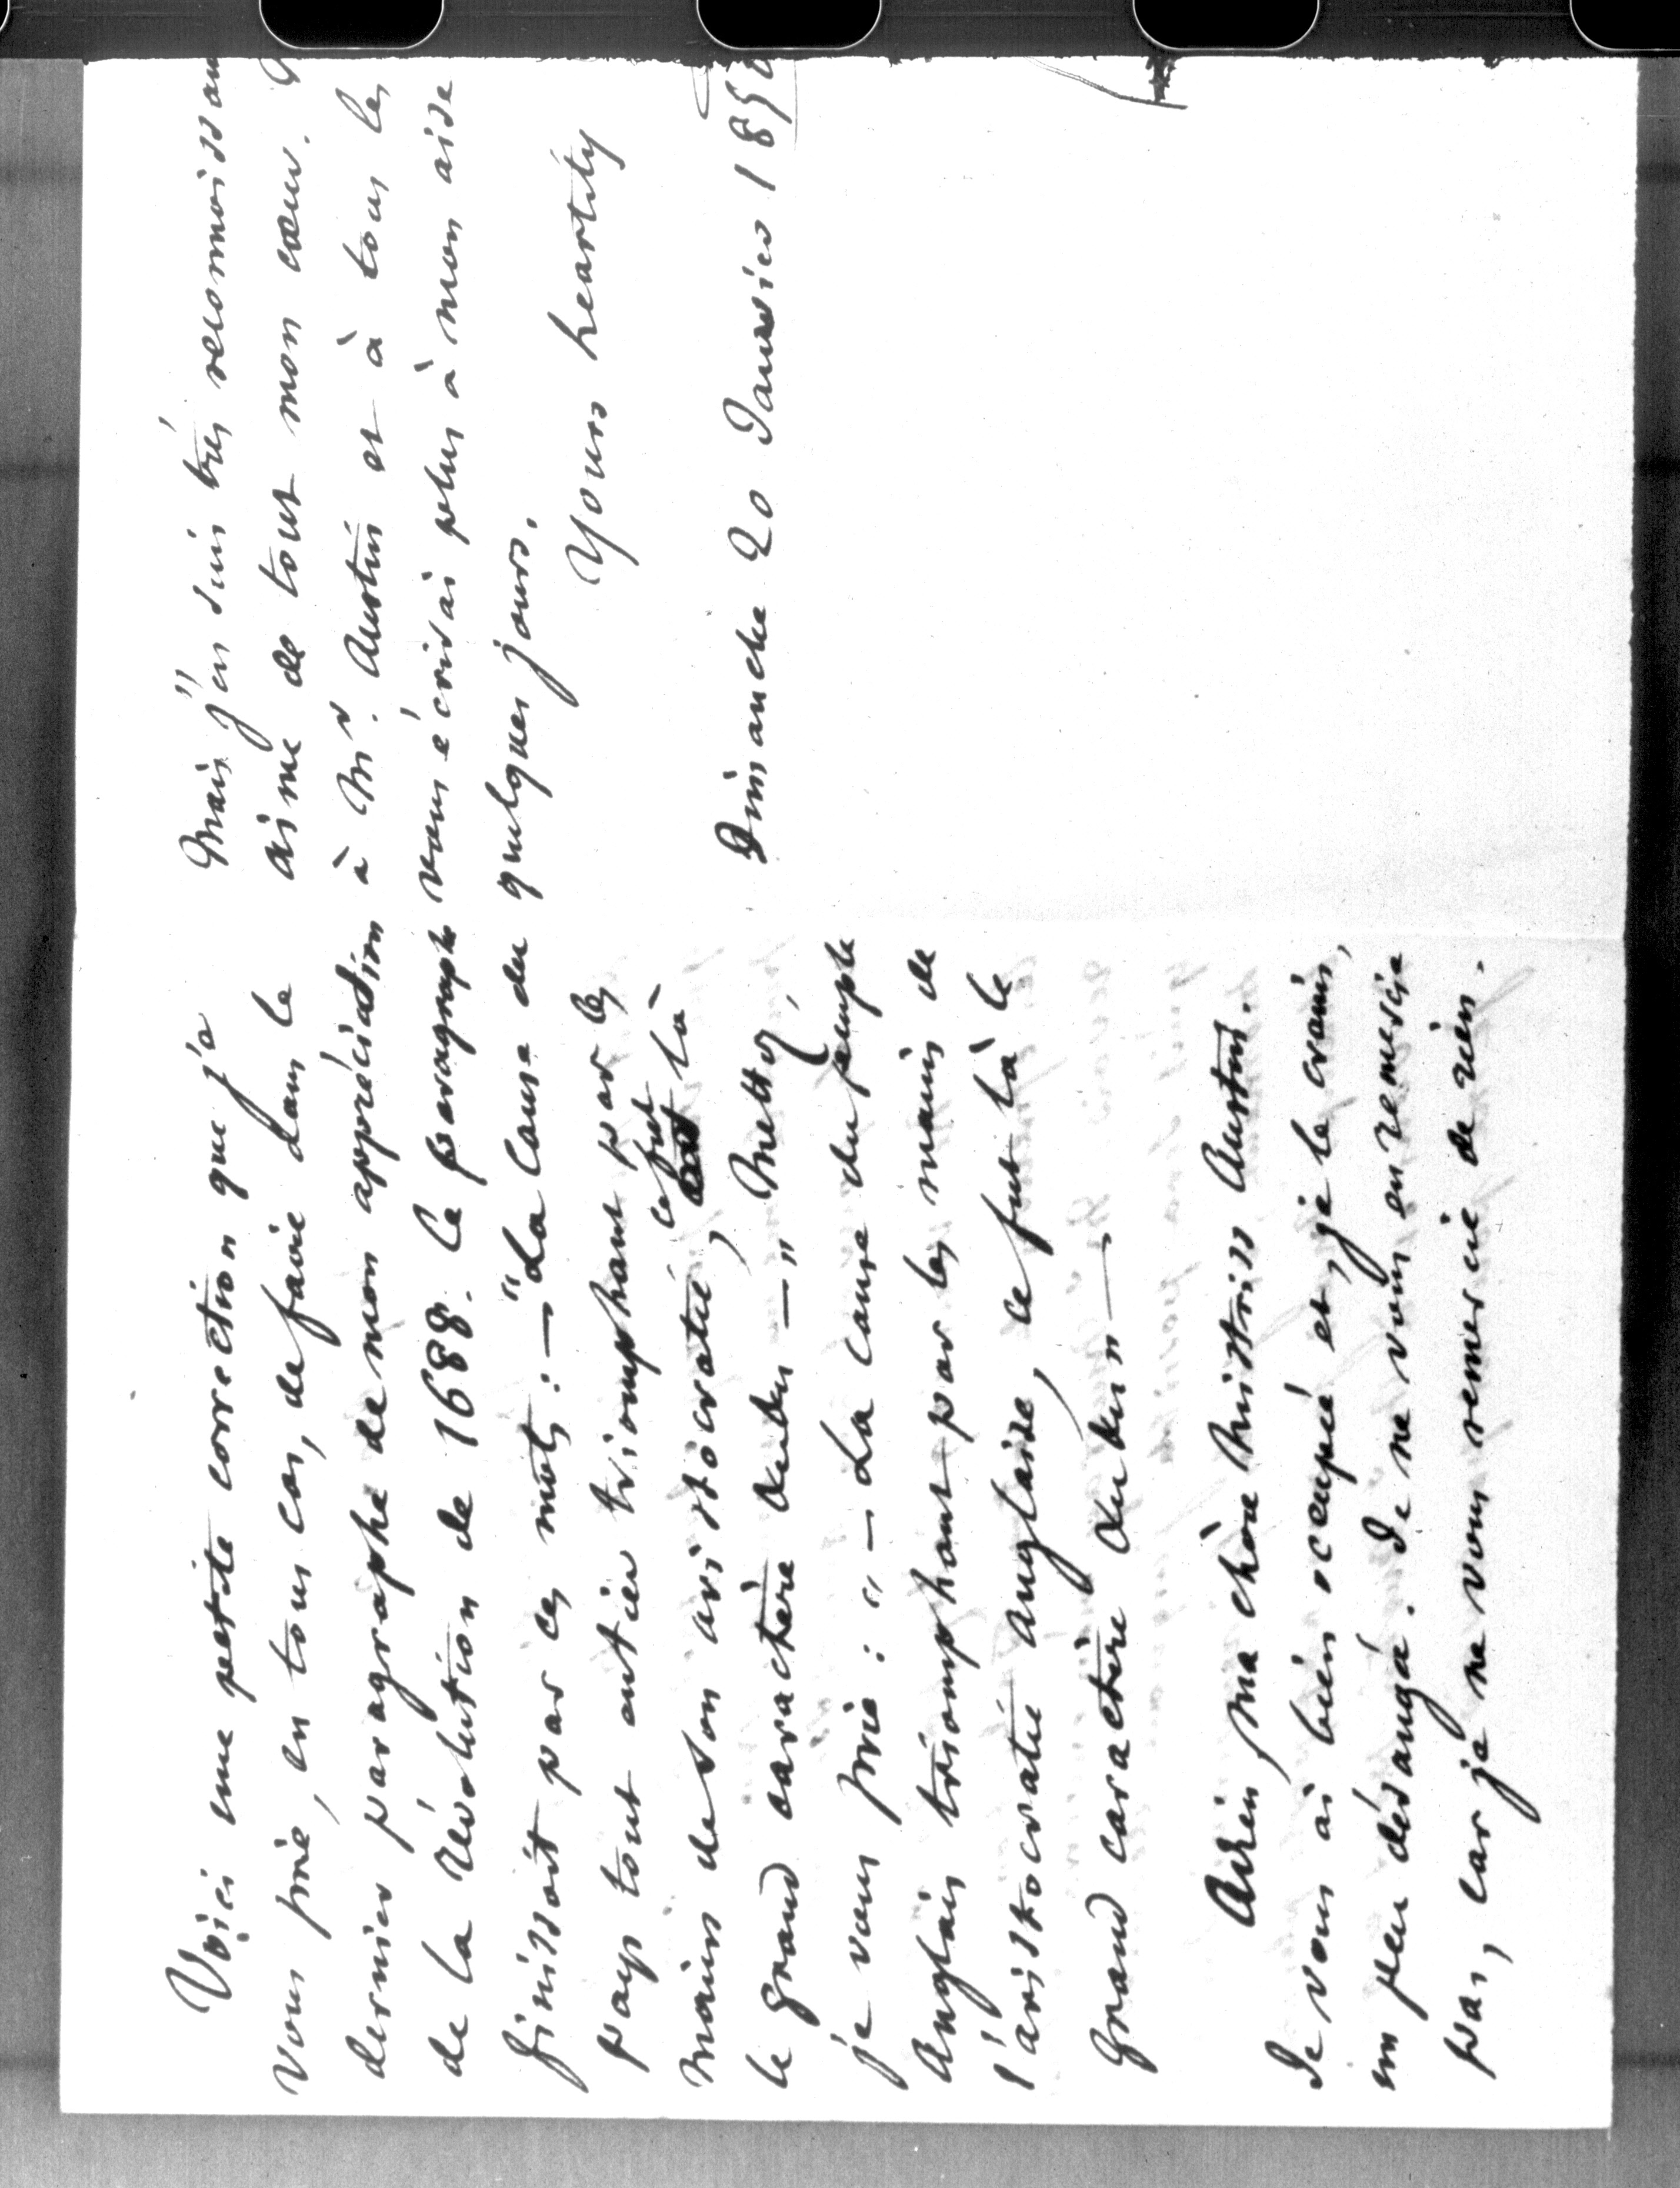 Voici une petite correction que je
vous prie, en tous cas, de faire dans le
dernier paragraphe de mon appréciation
de la Révolution de 1688. Ce paragraphe
finissoit par ces mots : — "La Cause du
pays tout entier triomphant par les
mains de son aristocratie, ce fut là
le grand caractère du — " Mettez,
je vous prie : " — La cause du peuple
Anglais triomphant par les mains de
l'aristocratie anglaise, ce fut là le
grand caractère —
Adieu, ma chère Mistriss Austin.
Je vous ai bien occupée et, je le crains,
un peu dérangé. Je ne vous en remercie
pas, car je ne vous remercie de rien.
Mais j'en suis très
aime de tout mon cœur.
à Mr. Austin et à tous les
vous écrirai plus à mon aise
quelques jours.
Yours heartily
Dimanche 20 Janvier